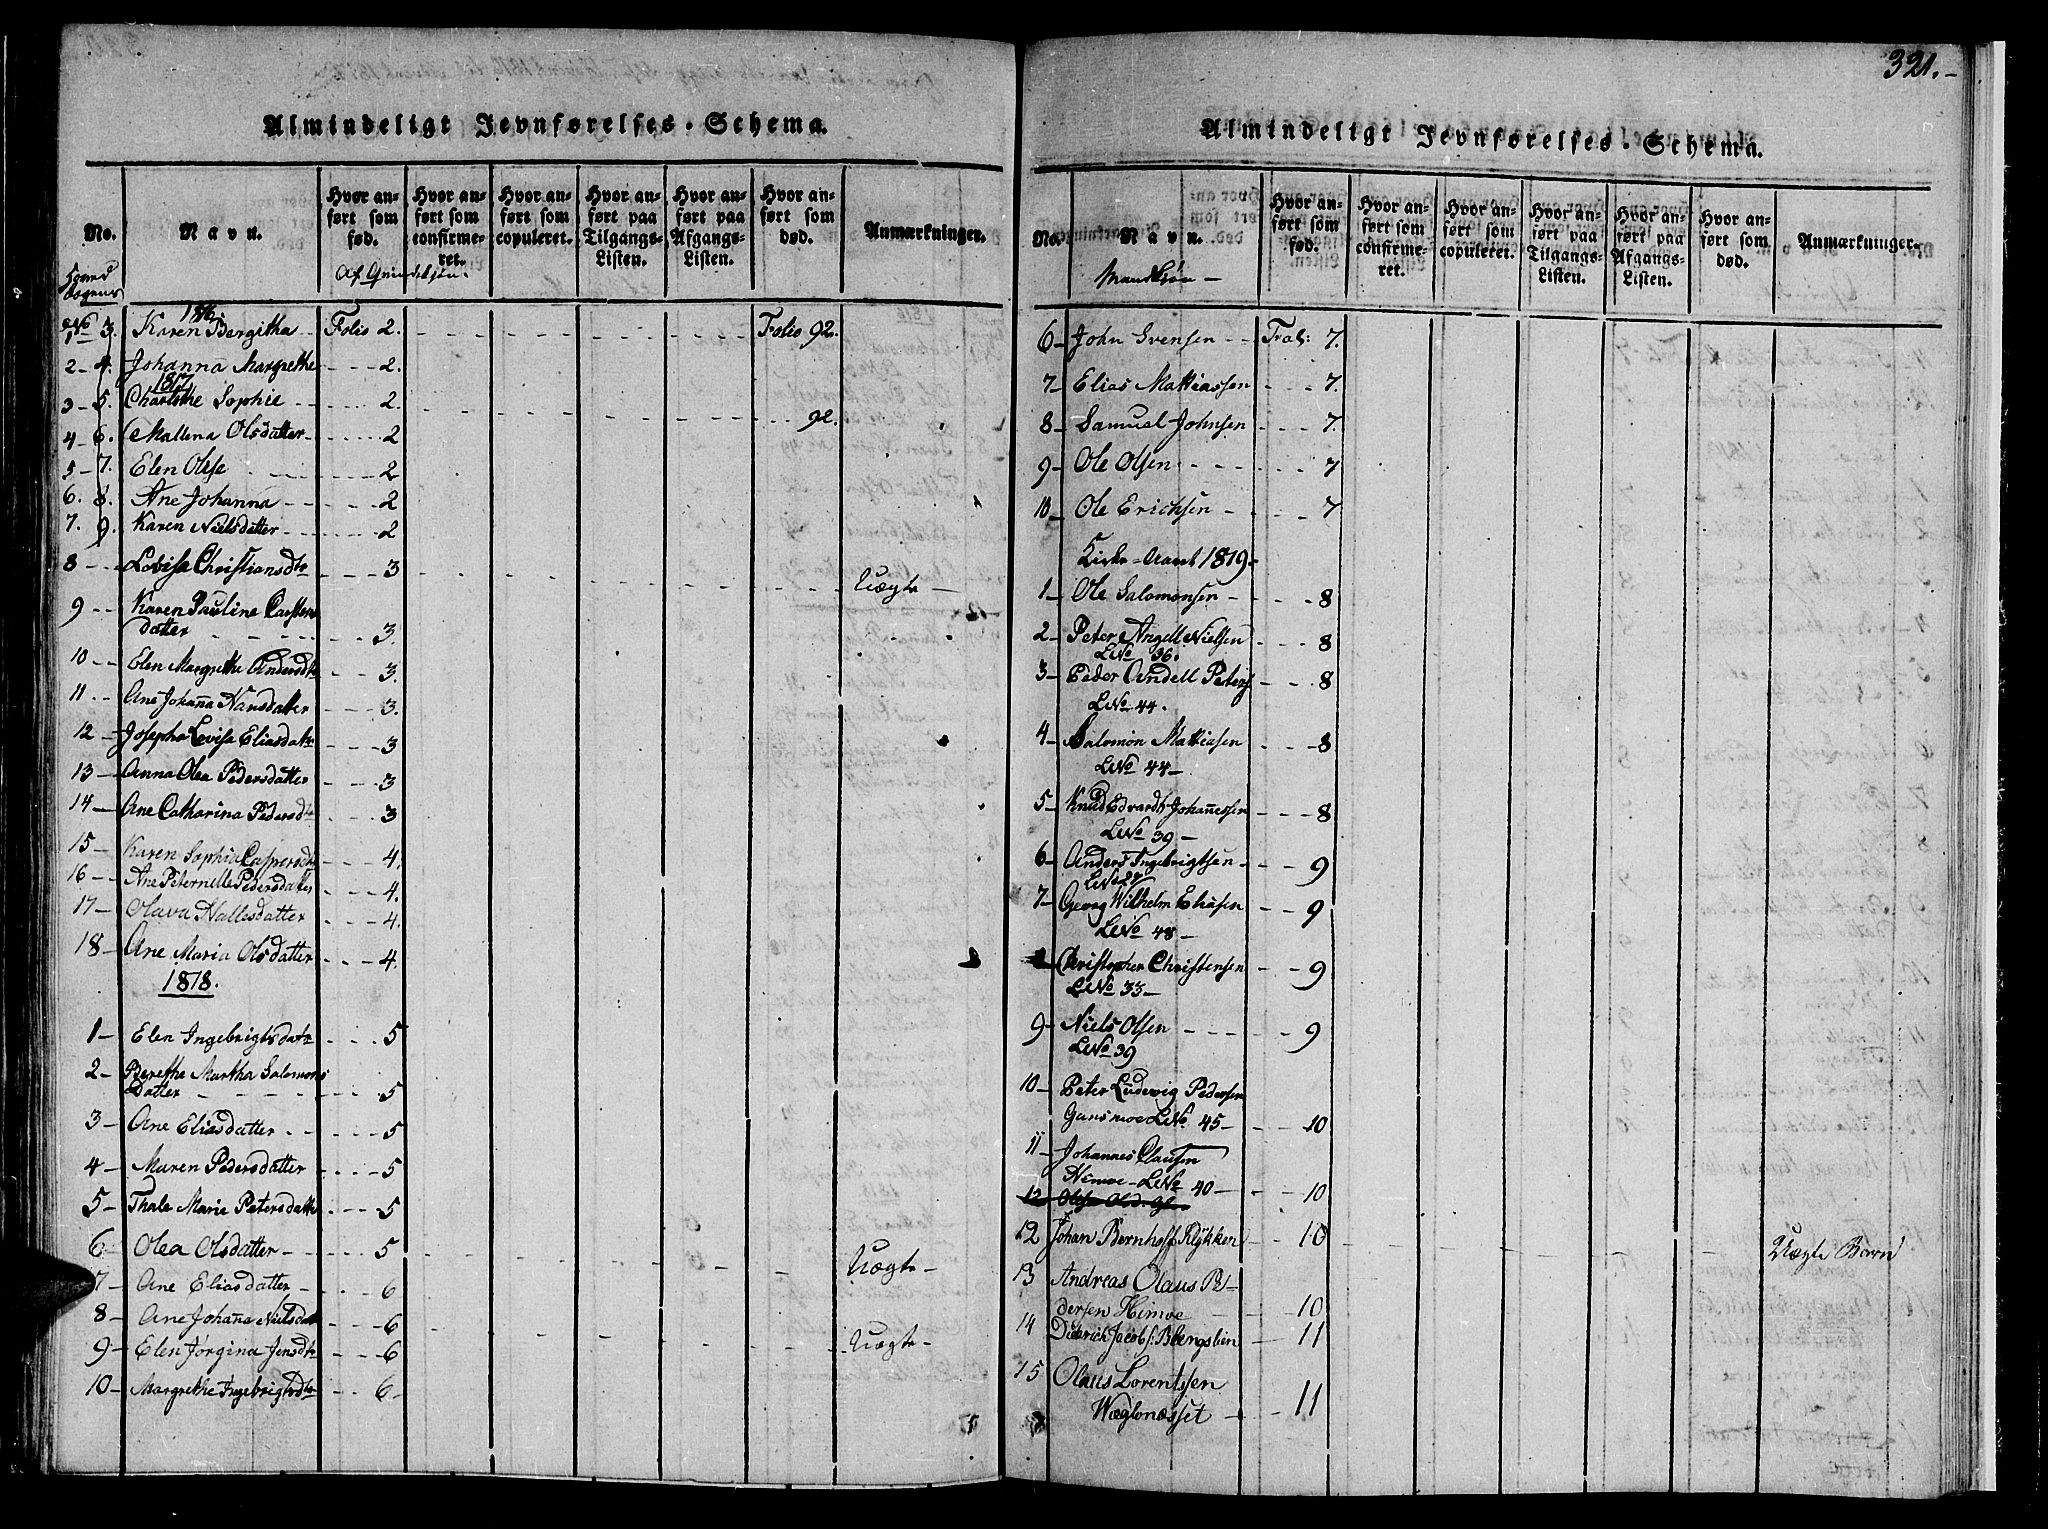 Almindeligt Jevnførelses-Schema.
No.
Navn.
Hvor anført som fød.
Hvor anført som confirmeret.
Hvor anført som copuleret.
Hvor anført paa Tilgangs-Listen.
Hvor anført paa Afgangs-Listen.
Hvor anført som død.
Anmærkninger.
Af Qvindekjøn.
1816
1 3. Karen Bergitha Folio 2. Folio 92.
2 - 4. Johanna Margrethe 2.
1817
3 - 5. Charlothe Sophie 2. 92.
4 - 6. Mallena Olsdatter 2
5 - 7. Elen Olsse 2
6. 8. Ane Johanna 2
7. 9. Karen Nielsdatter 2
8 Lovisa Christiansdtr 3 Uægte
9 Karen Pauline Carstens
datter 3.
10 Elen Margrethe Andersdtr 3.
11 Ane Johaña Hansdatter 3.
12 Josepha Lovisa Eliasdatr 3
13 Anna Olea Pedersdatter 3
14 Ane Catharina Pedersdtr 3
15 Karen Sophia Caspersdtr 4.
16 Ane Peternille Pedersdatter 4.
17 Olava Hallesdatter 4.
18 Ane Maria Olsdatter 4.
1818.
1 Elen Ingebrigtsdatr 5
2 Berethe Martha Salomons
Datter 5
3 Ane Eliasdatter 5
4 Maren Pedersdatter 5
5 Thale Marie Petersdatter 5
6 Olea Olsdatter 5 Uægte
7 Ane Eliasdatter 6
8 Ane Johaña Nielsdatr 6
9 Elen Jørgina Jensdtr 6 Uægte
10 Margrethe Ingebrigtsdtr 6
321.
Almindeligt Jevnførelses-Schema.
No.
Navn.
Hvor anført som fød.
Hvor anført som confirmeret.
Hvor anført som copuleret.
Hvor anført paa Tilgangs-Listen.
Hvor anført paa Afgangs-Listen.
Hvor anført som død.
Anmærkninger.
Mandkjøn
6 John Svensen 7.
7 Elias Mathiassen 7.
8 Samuel Johnsen 7.
9 Ole Olsen 7
10 Ole Erichsen 7
Kirke-Aaret 1819
1 Ole Salomonsen 8
2 Peter Angell Nielsen 8
LNo 36.
3 Peder Andell Peters 8
LNo 44.
4 Salomon Mathiasen 8
LNo 44
5 Knud Edvardt Johañessen 8
LNo 39
6 Anders Ingebrigtsen 9
LNo 27
7 Georg Wilhelm Eliasen 9
LNo 48
8 Christopher Christensen 9
LNo 33
9 Niels Olsen 9
LNo 39
10 Peter Ludewig Pedersen
Gansmoe LNo 45 10
11 Johannes Clausen
Nimoe LNo 40 10
12
12 Johan Bernhoff Klykken 10 Uægte Barn
13 Andreas Olaus Pe-
dersen Himoe 10
14 Diderich Jacobs: Bangslien 11
15 Olaus Lorentssen
Wæglonæsset 11